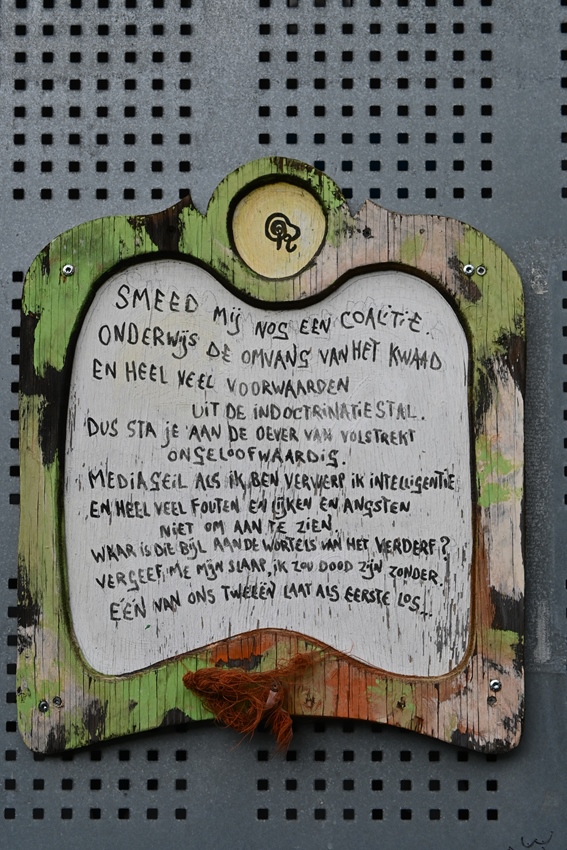 SMEED Mij NOG EEN COALiTiE.
ONDERWijS DE OMVANG VAN HET KWAAD
EN HEEL VEEL VOORWAARDEN
UiT DE iNDOCTRiNATiESTAL.
DUS STA je AAN DE OEVER VAN VOLSTREKT
ONGELOOFWAARDiG.
MEDiAGEiL ALS iK BEN VERWERP iK iNTELLiGENTiE
EN HEEL VEEL FOUTEN EN LijKEN EN ANGSTEN
NiET OM AAN TE ZiEN.
WAAR iS DiE BijL AAN DE WORTELS VAN HET VERDERF?
VERGEEF ME MijN SLAAP, iK ZOU DOOD ZijN ZONDER.
ÉÉN VAN ONS TWEEËN LAAT ALS EERSTE LOS...